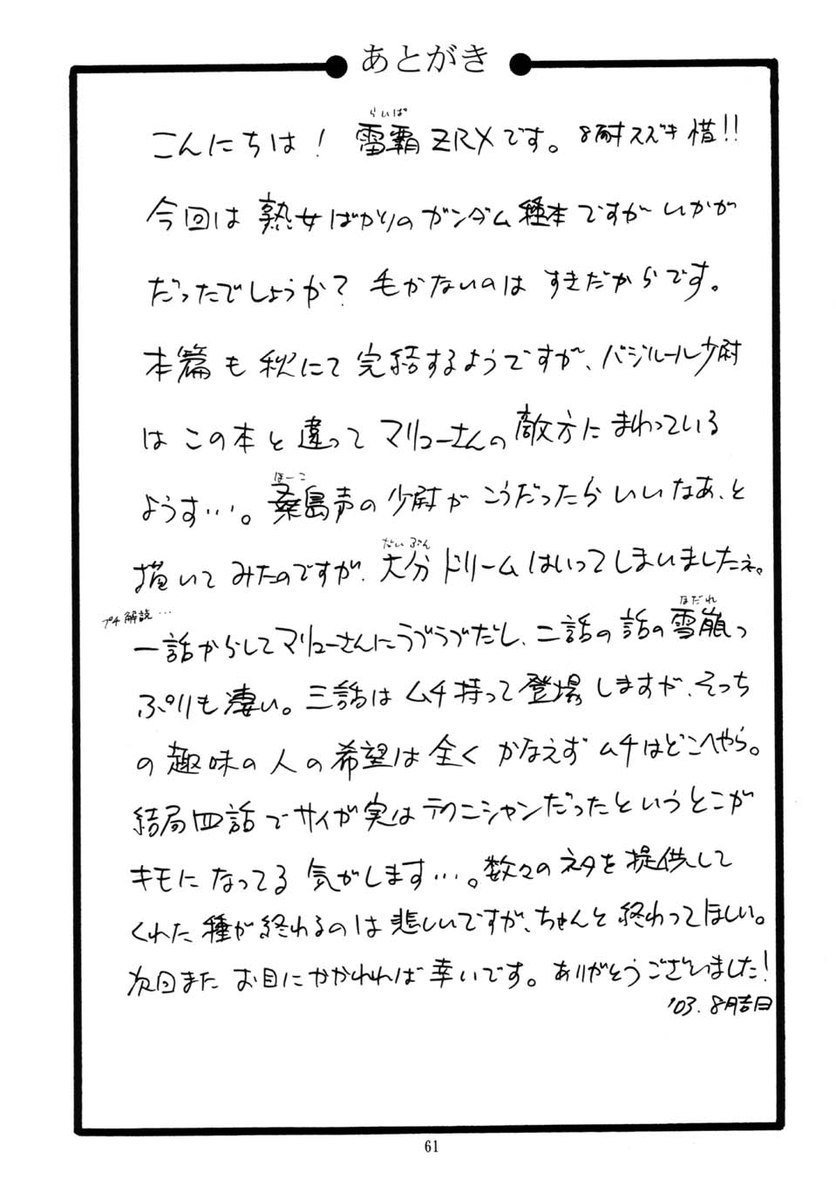 あとがき
こんにちは！雷覇ZRXです。8耐スズキ惜!!
らいぱ
今回は熟女ばかりのガンダム種本ですがいかが
だったでしょうか？毛がないのはすきだからです。
本篇も秋にて完結するようですが、バジルール少尉
はこの本と違ってマリューさんの敵方にまわっている
ようす…。桑島声の少尉がこうだったらいいなあ、と
ほーこ
描いてみたのですが、大分ドリームはいってしまいましたね。
だいぶん
プチ解説…
一話からしてマリューさんにラブラブだし、二話の話の雪崩っ
なだれ
ぷりも凄い。三話はムチ持って登場しますが、そっち
の趣味の人の希望は全くかなえずムチはどこへやら。
結局四話でサイが実はテクニシャンだったというとこが
キモになってる気がします…。数々のネタを提供して
くれた種が終わるのは悲しいですが、ちゃんと終わってほしい。
次回またお目にかかれれば幸いです。ありがとうございました！
'03.8月吉日
61